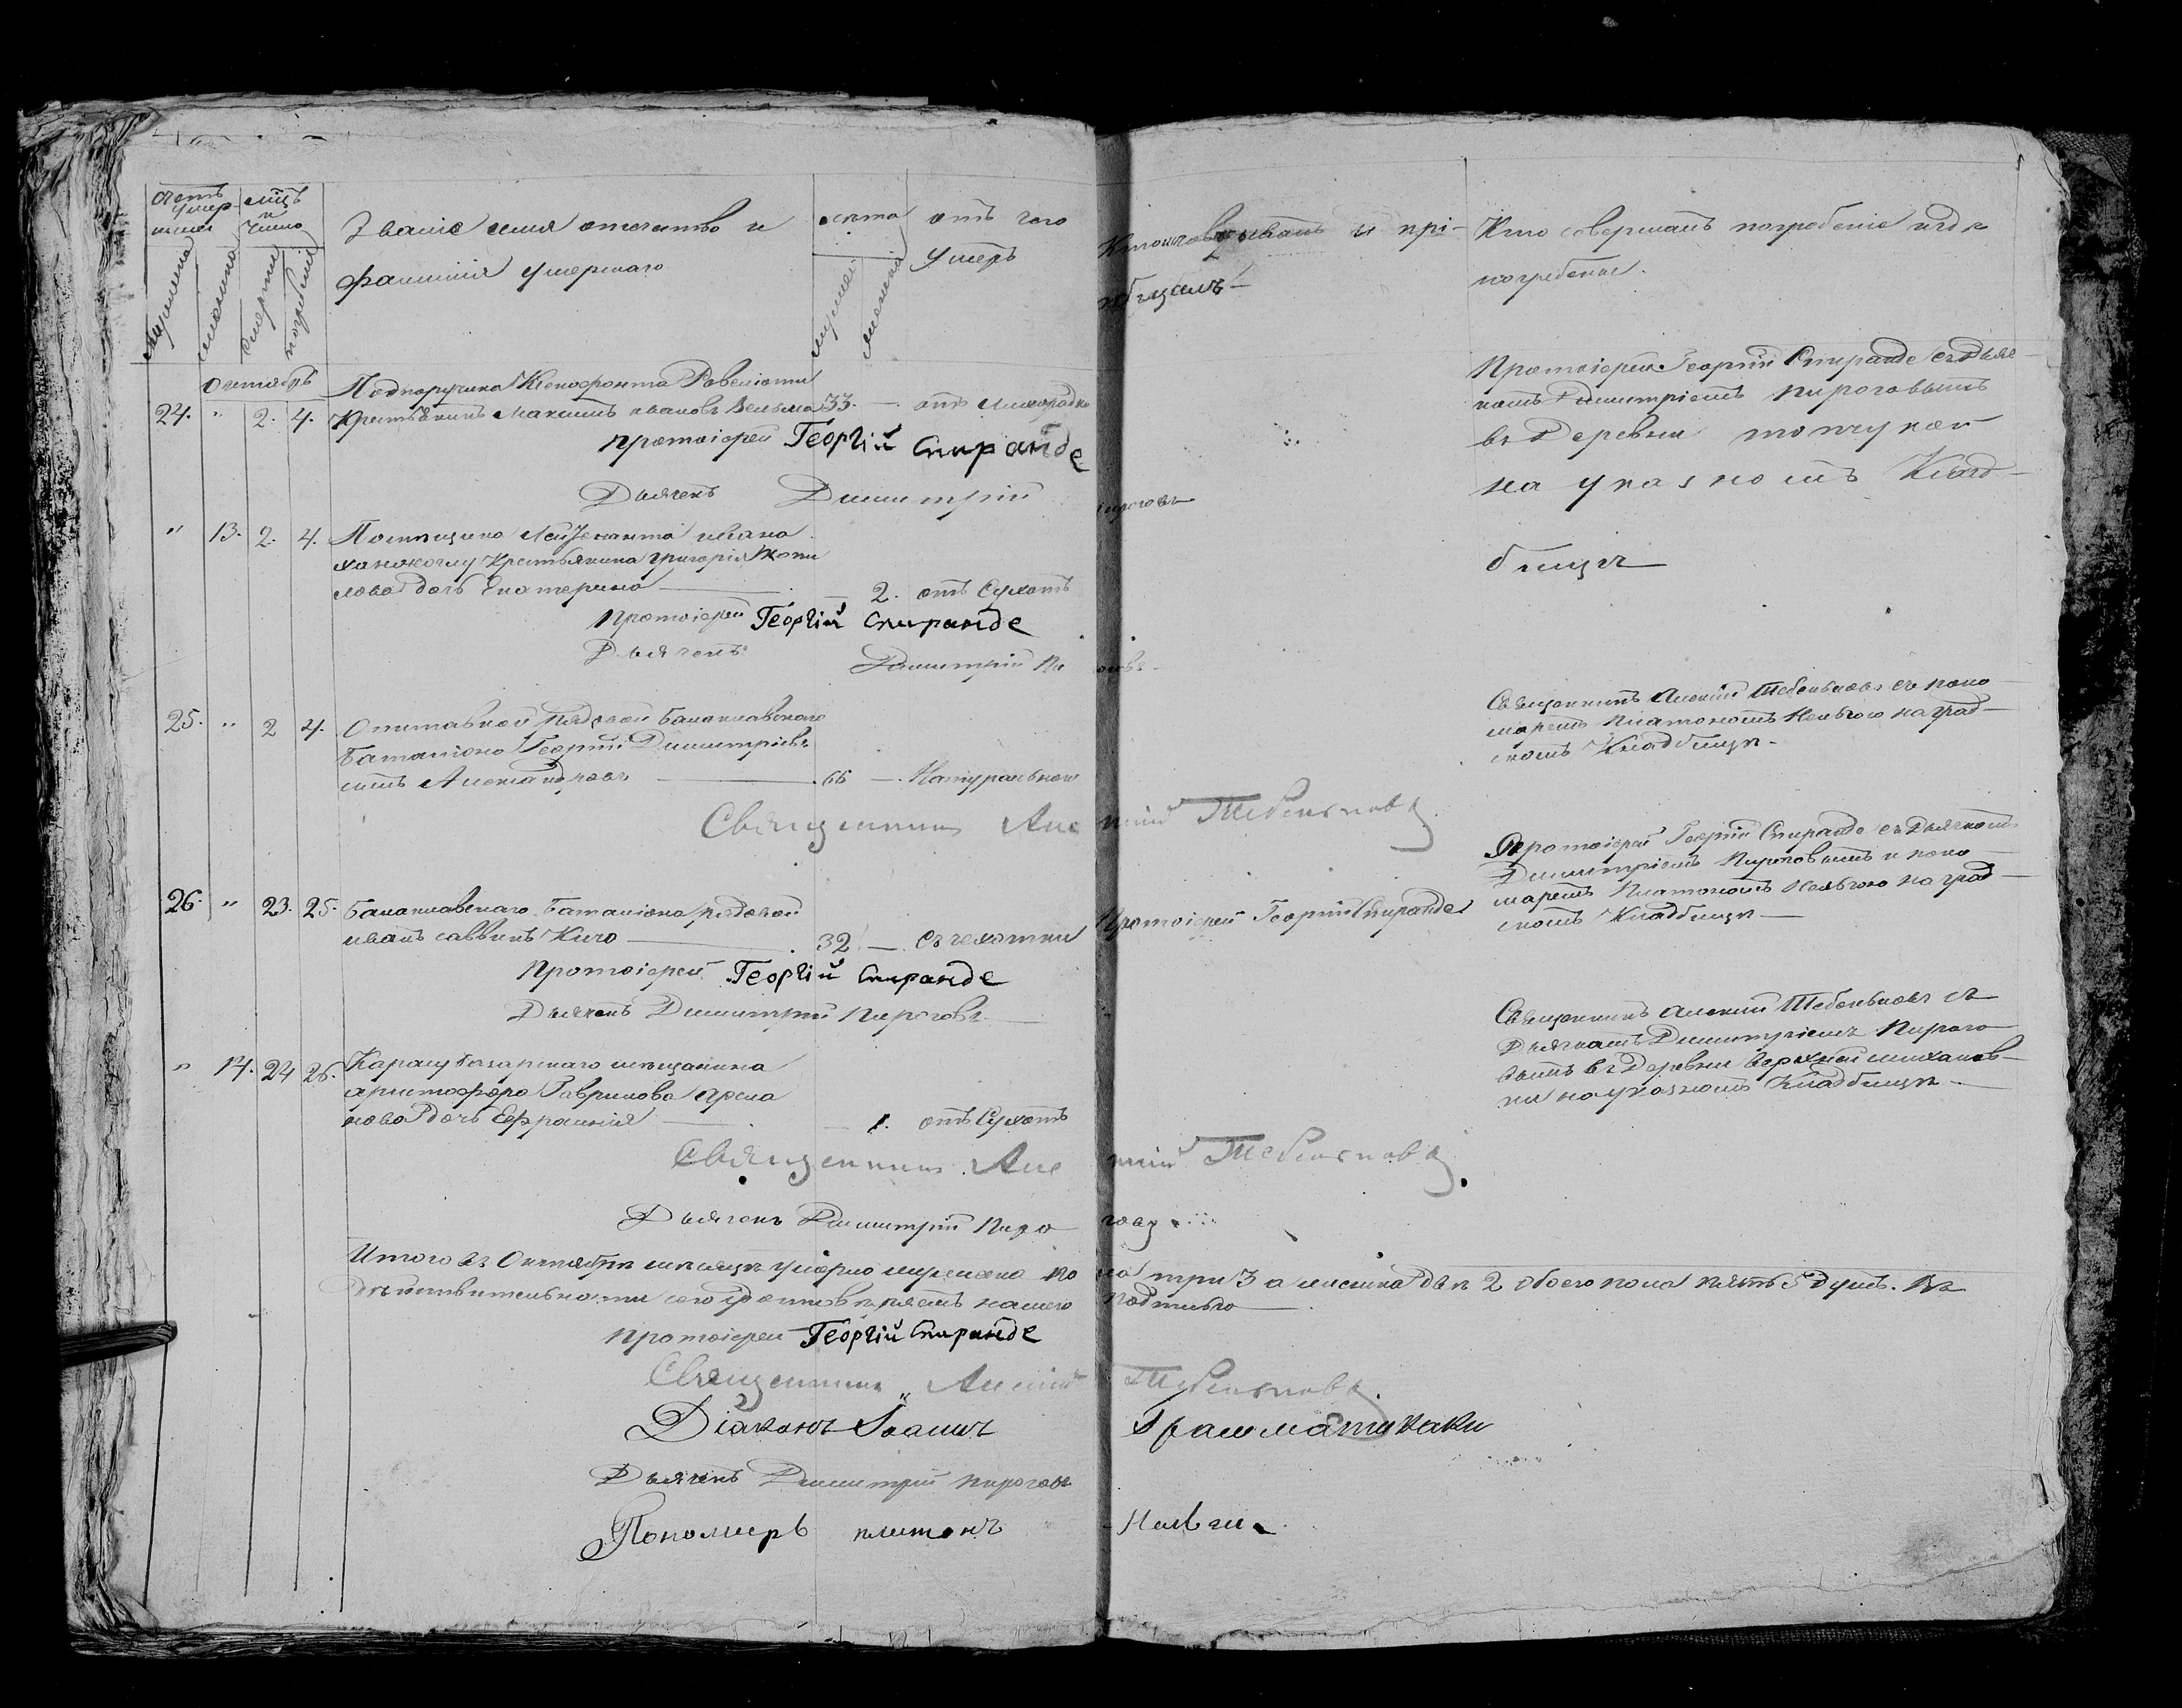 счетъ умер шихъ
мѣсць и число
Званіе имя отечьство и
фамилія умершаго
лѣта
отъ чего
умеръ
мужеска
женска
смерти
погребенія
мужеска
женска
Кто исповѣдывалъ и прі-
общалъ
Кто совершалъ погребеніе и гдѣ
погребены.
Октябрь
Подпоручика Ксенофонта Ревеліоти
24. " 2. 4. Крестьянинъ Максимъ ивановъ Вельма 33. — отъ лихорадки
протоіерей Георгій Спиранде
Дьячекъ Димитрій Пироговъ
Протоіерей Георгій Спиранде съ дьяч-
комъ Димитріемъ Пироговымъ
въ деревни
на указномъ Клад-
бищѣ
" 13. 2. 4. Помѣщика Лейтенанта ивана
крестьянина григорія
дочь Екатерина — 2. отъ Сухотъ
протоіерей Георгій Спиранде
Дьячекъ Димитрій
25. " 2 4. Отставной рядовой Балаклавскаго
Баталіона Георгій Димитріевъ
сынъ Александровъ — 66 — Натуральною
Священникъ Алексій Тебеньковъ
Священникъ Алексій Тебеньковъ съ поно-
маремъ Платономъ на град-
скомъ Кладбищѣ.
26. " 23. 25. Балаклавскаго Баталіона рядовой
иванъ саввинъ Кичо — 32 — съ чехотки
Протоіерей Георгій Спиранде
протоіерей Георгій Спиранде
Дьячекъ Димитрій Пироговъ
Протоіерей Георгій Спиранде съ дьячкомъ
Димитріемъ Пироговымъ и поно-
маремъ Платономъ на град-
скомъ Кладбищѣ —
" 14. 24 26. Карасу базарскаго мѣщанина
христофора Гаврилова
дочь Ефросинія — 1. отъ Сухотъ
Священникъ Алексій Тебеньковъ
Дьячекъ Димитрій Пироговъ
Священникъ Алексій Тебеньковъ съ
Дьячкомъ Димитріемъ Пирого-
вымъ въ деревни
на указномъ Кладбищѣ —
Итого въ Октябрѣ мѣсяцѣ умерло мужеска пола три 3 а женска двѣ 2 обоего пола пять 5 душъ. Въ
дѣйствительности сего удостовѣряемъ нашею подписью
протоіерей Георгій Спиранде
Священникъ Алексій Тебеньковъ
Діаконъ Іоаннъ Грамматикаки
Дьячекъ Димитрій пироговъ
Пономарь платонъ